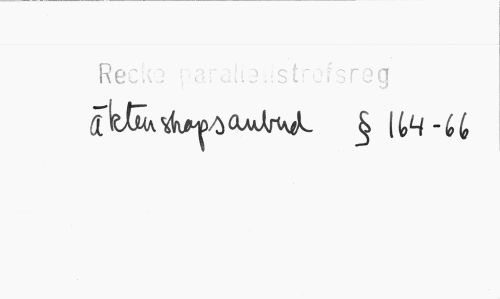 Recke parallellstrofsreg
äktenskapsanbud § 164-66